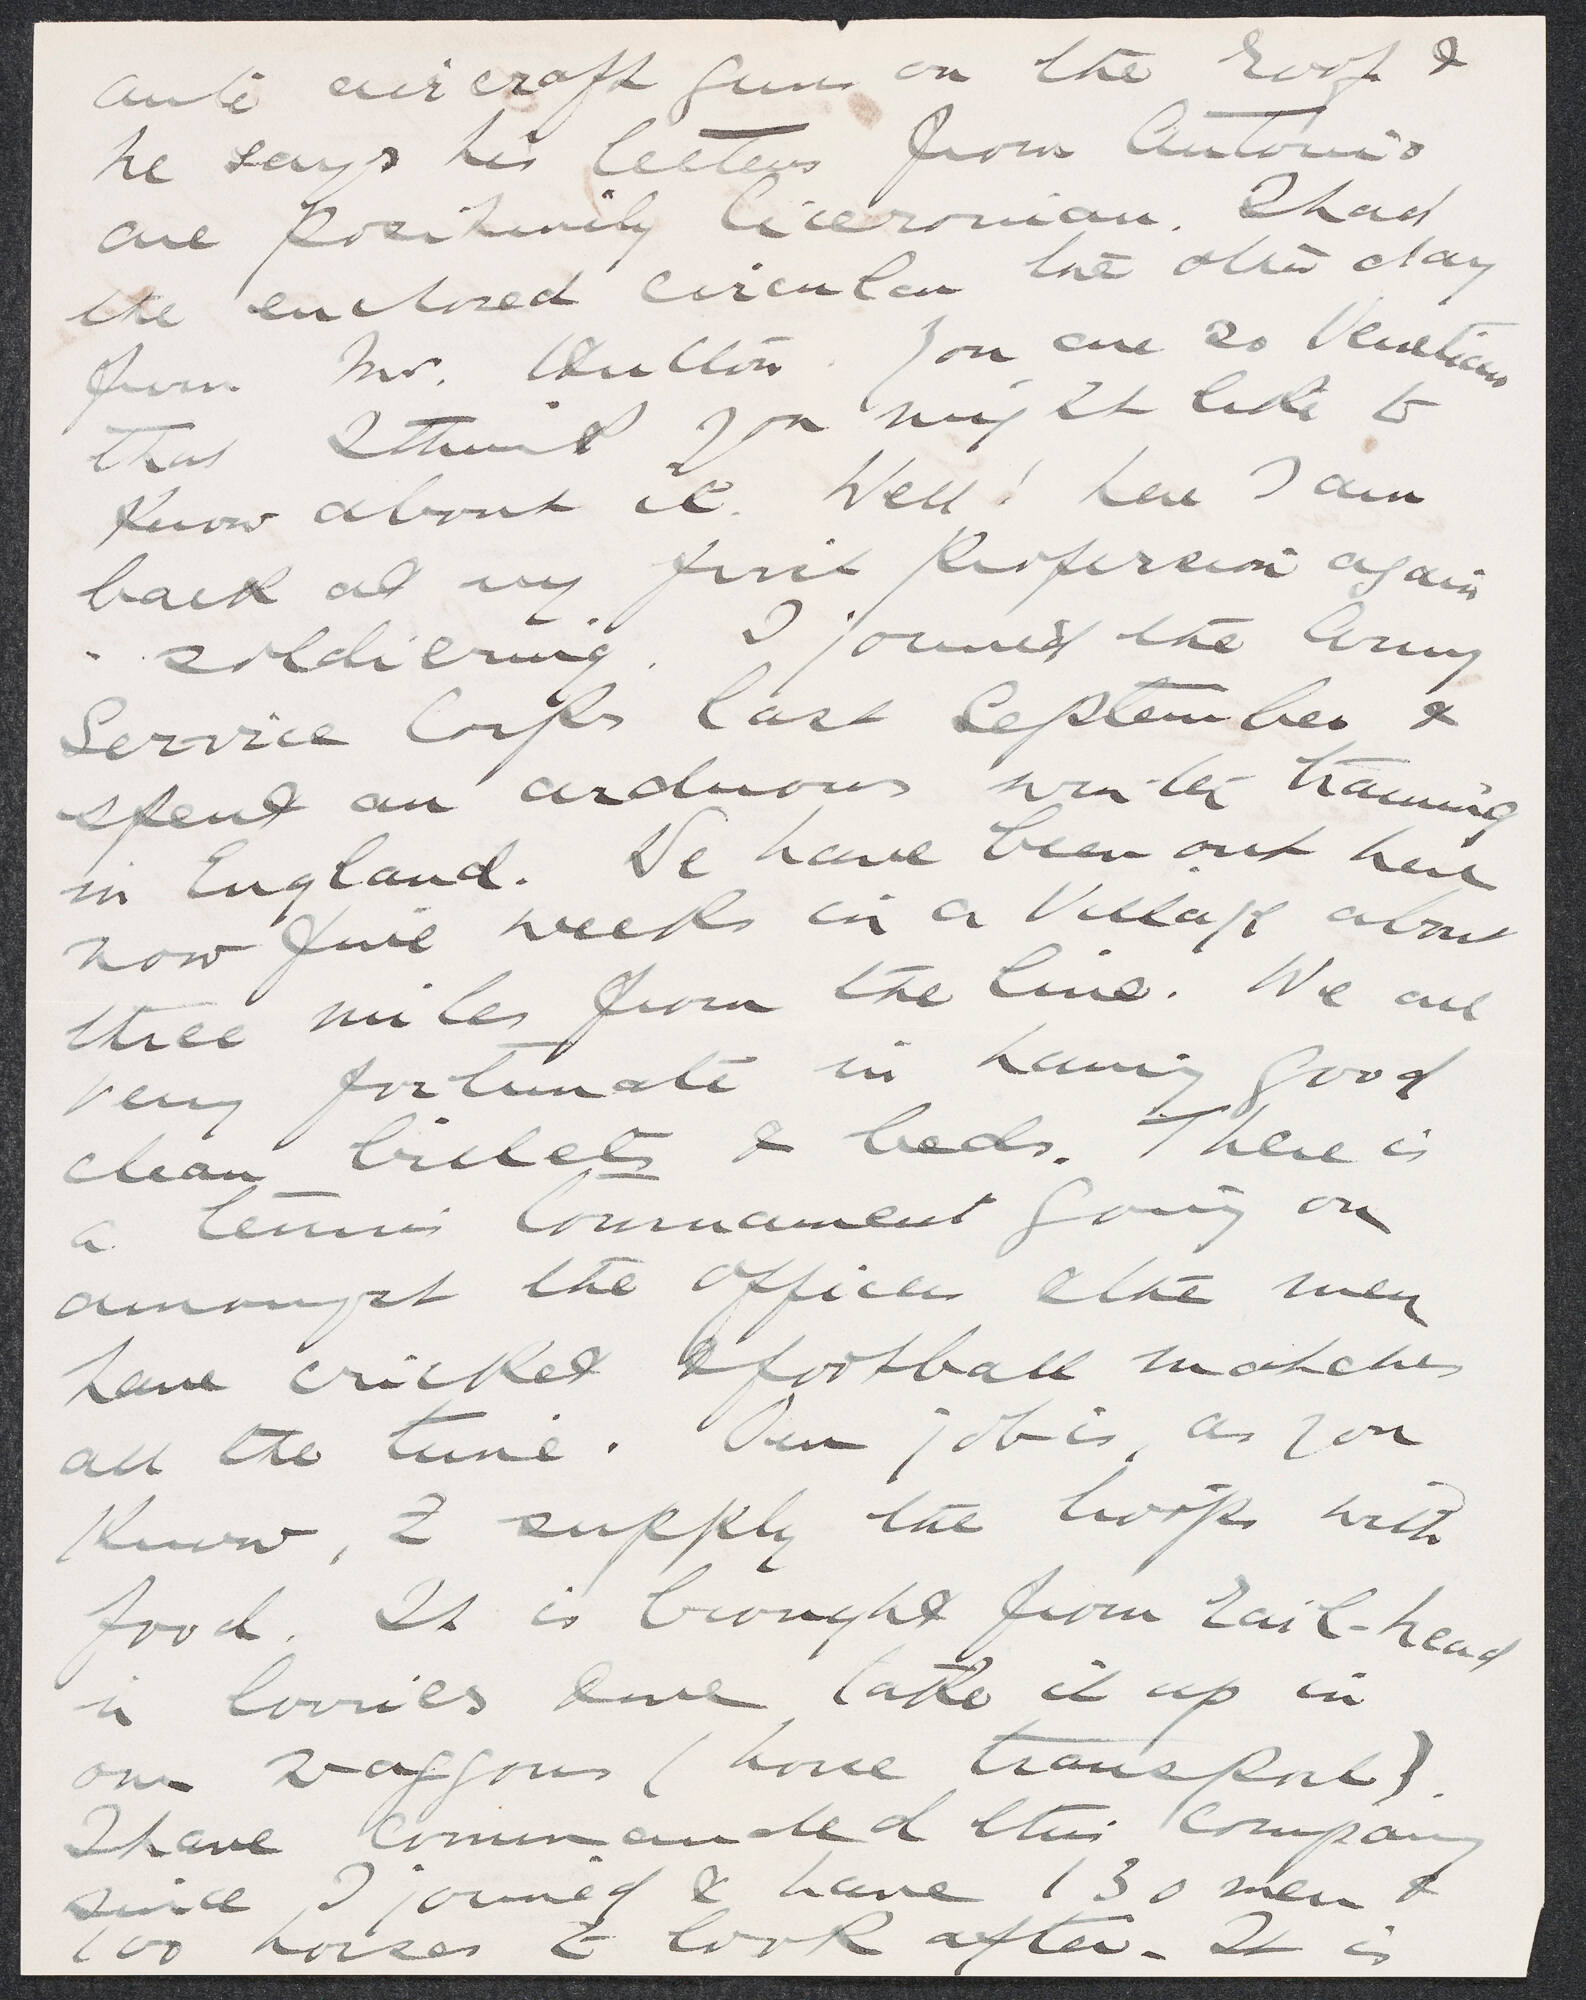 anti aircraft guns on the roof &
he says his letters from Antonio
are positively Ciceronian. I had
the enclosed circular the other day
from Mr. Hulton. You are so Venetian
that I think you might like to
know about it. Well! here I am
back at my first profession again
- soldiering. I joined the Army
Service Corps last September &
spent an arduous winter training
in England. We have been out here
now five weeks in a village about
three miles from the line. We are
very fortunate in having good
clean billets & beds. There is
a tennis tournament going on
amongst the officers & the men
have cricket & football matches
all the time. Our job is, as you
know, to supply the troops with
food. It is brought from rail-head
in lorries & we take it up in
our waggons (horse transport).
I have commanded this company
since I joined & have 130 men &
100 horses to look after. It is